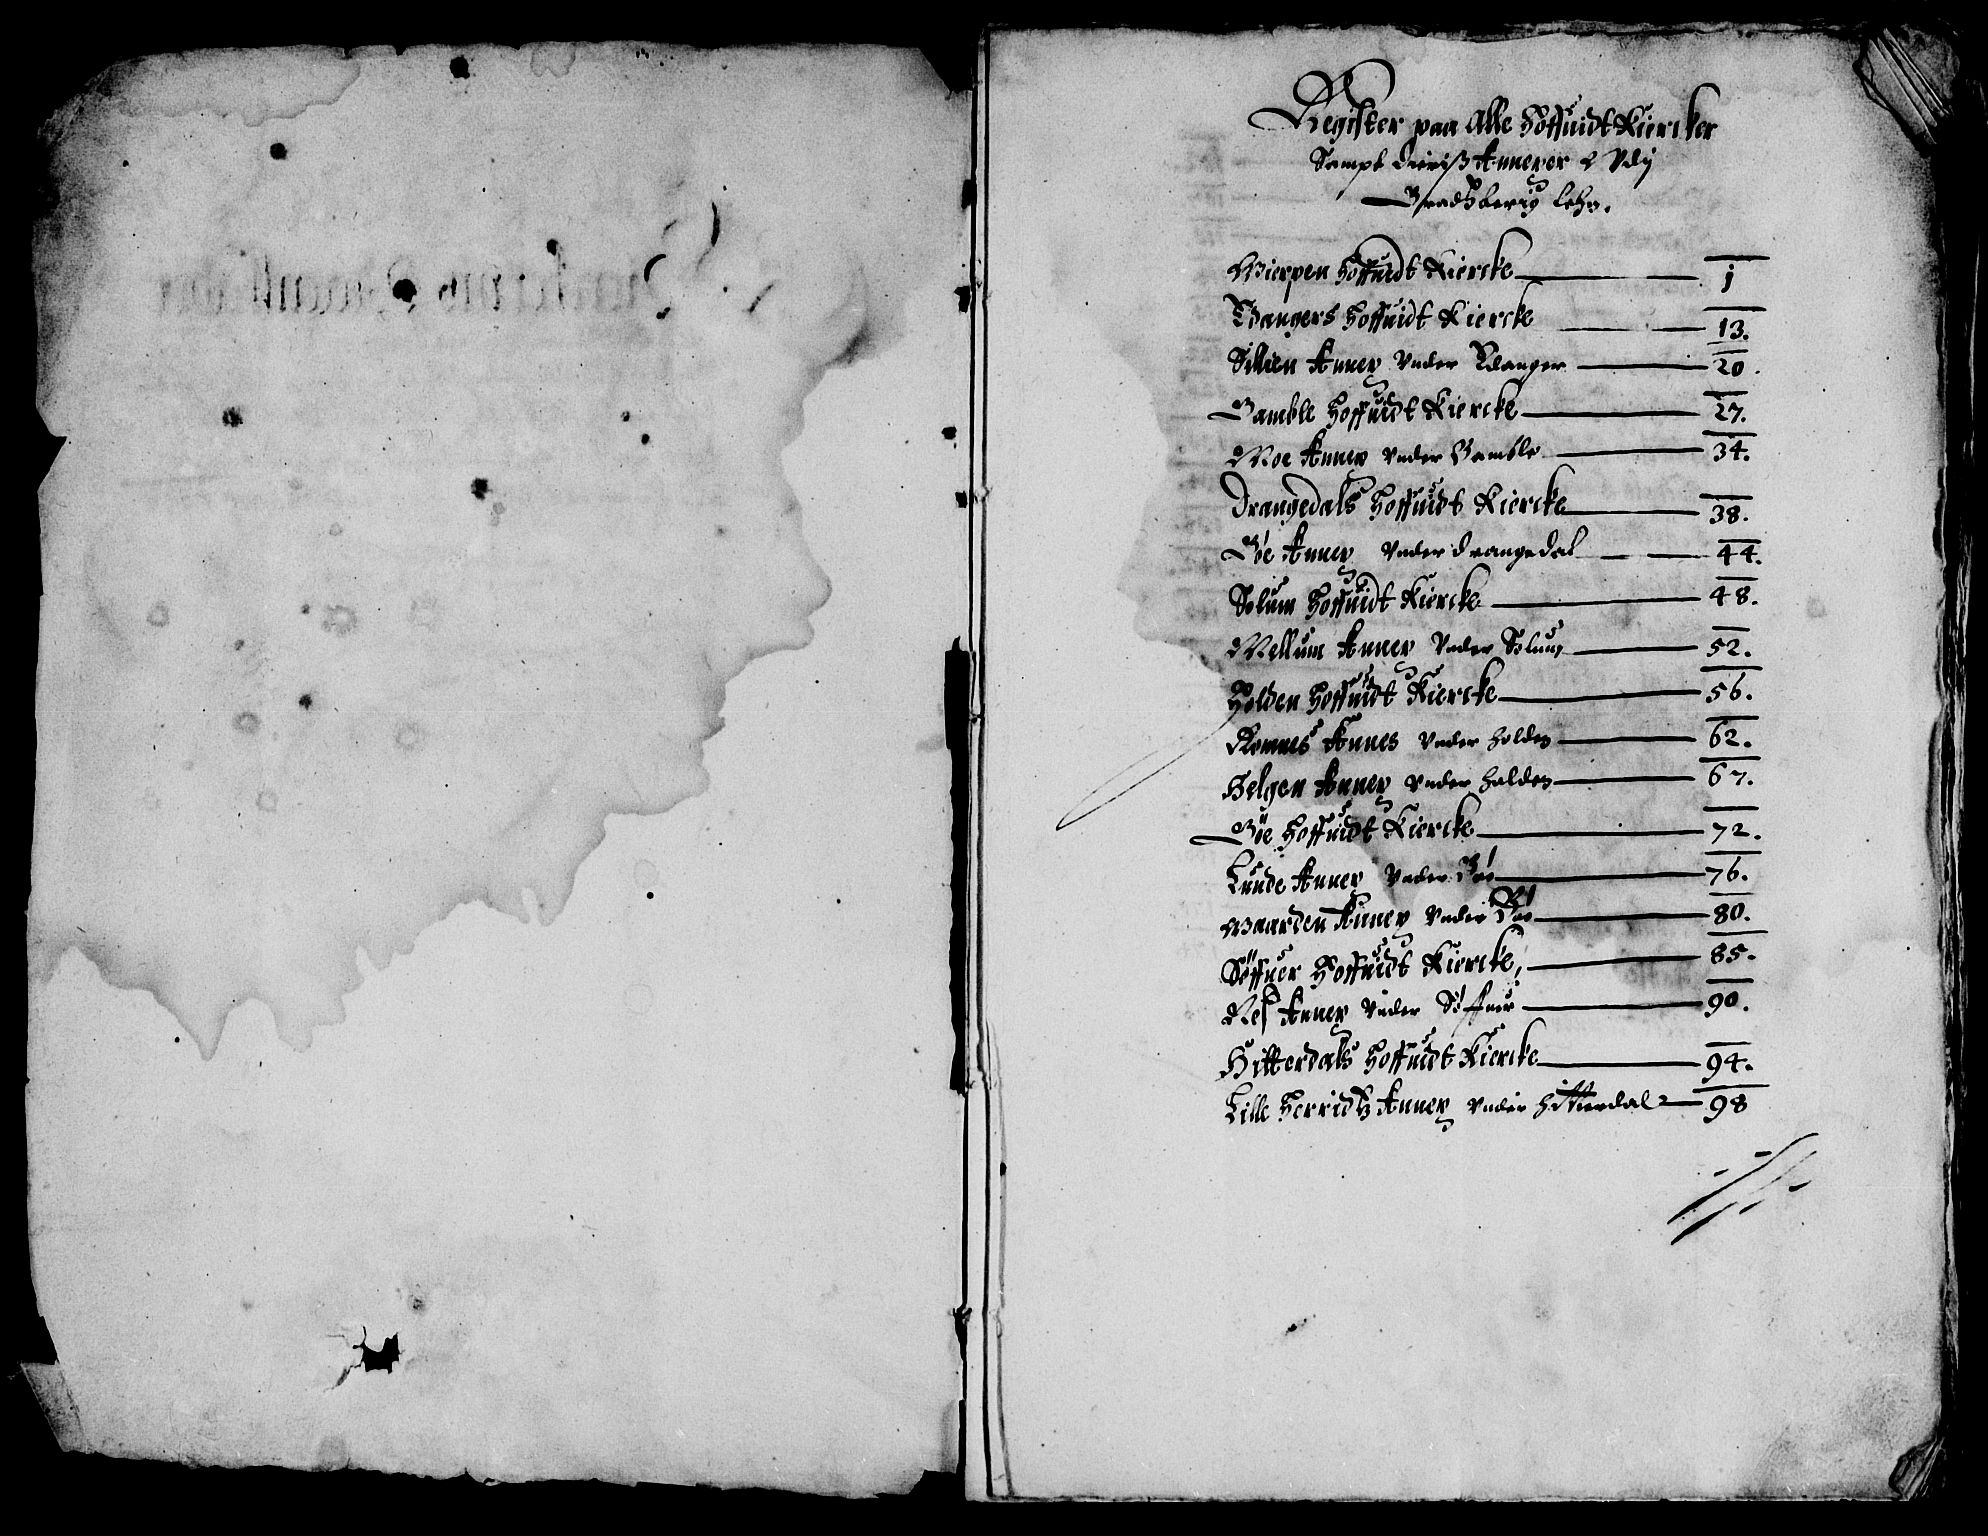 Register paa Alle HoffuidtKiercker
Sampt dieriß Annexer Vdij
Bradtzberig Lehn.
Gierpen Hoffuidt Kiercke 1
Eidangers Hoffuidt Kiercke 13.
Sillien Annex Vnder Edanger 20.
Bamble Hoffuidt Kiercke 27.
Moe Annex Vnder Bamble 34.
Drangedals Hoffuidt Kiercke 38.
Töe Annex Vnder Drangedal 44.
Solum Hoffuidt Kiercke 48.
Mellum Annex Vnder Solum 52.
Holden Hoffuidt Kiercke 56.
Romnes Annes Vnder Holden 62.
Helgen Annex Vnder Holden 67.
Böe Hoffuidt Kiercke 72.
Lunde Annex Vnder Böe 76.
Gaarden Annex Vnder Böe 80.
Söffuer Hoffuidt Kiercke, 85.
Nes Annex Vnder Söffuer 90.
Hitterdals Hoffuidt Kiercke 94.
Lille Herridtz Annex Vnder Hitterdal 98